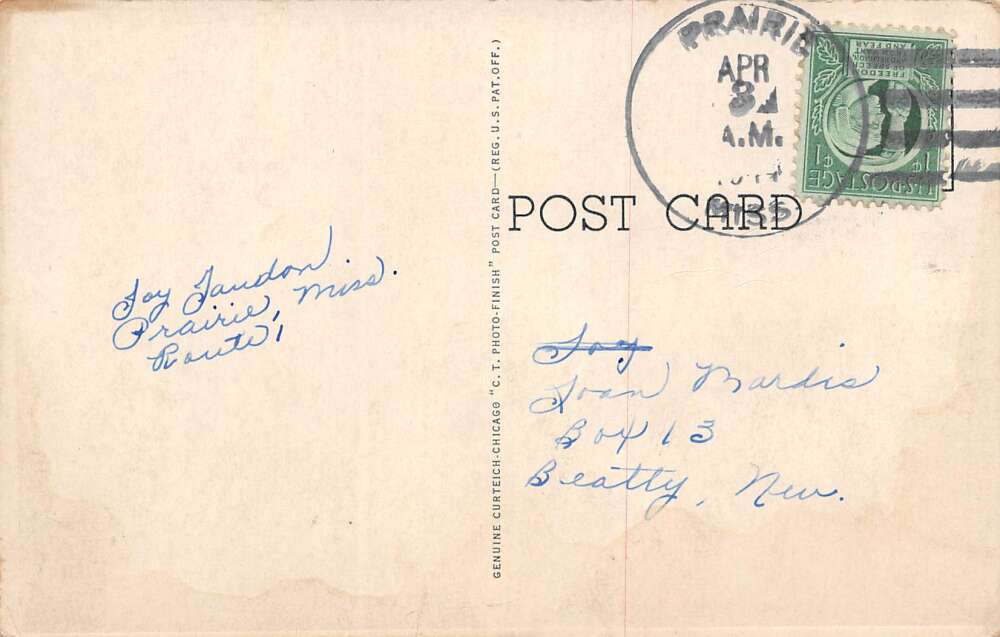 PRAIRIE
APR
3
A.M.
MISS
FREEDOM OF SPEECH AND RELIGION, FROM WANT AND FEAR
1¢ U.S. POSTAGE 1¢
POST CARD
GENUINE CURTEICH-CHICAGO "C. T. PHOTO-FINISH" POST CARD—(REG. U. S. PAT. OFF.)
Joy Taudon.
Prairie, Miss.
Route 1
Joy
Joan Mardis
Box 13
Beatty, Nev.